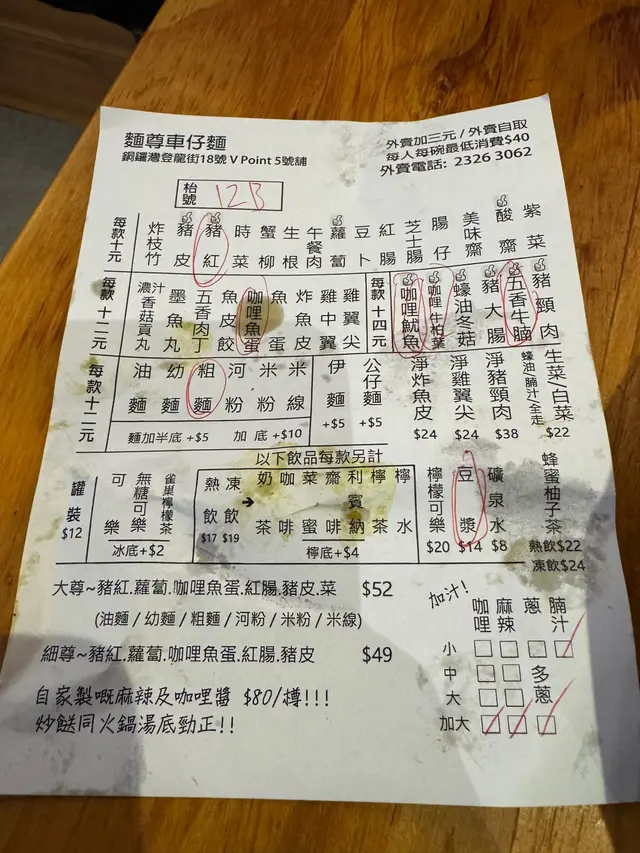 麵尊車仔麵
銅鑼灣登龍街18號 V Point 5號舖
外賣加三元 / 外賣自取
每人每碗最低消費$40
外賣電話: 2326 3062
枱號 12B
每款十元
炸枝竹
豬皮
豬紅
時菜
蟹柳
生根
午餐肉
蘿蔔
豆卜
紅腸
芝士腸
腸仔
美味齋
酸齋
紫菜
每款十二元
濃汁香菇貢丸
墨魚丸
五香肉丁
魚皮餃
咖哩魚蛋
魚蛋
炸魚皮
雞中翼
雞翼尖
每款十四元
咖哩魷魚
咖哩牛柏葉
蠔油冬菇
豬大腸
五香牛腩
豬頸肉
每款十二元
油麵
幼麵
粗麵
河粉
米粉
米線
麵加半底 +$5 加底 +$10
伊麵 +$5
公仔麵 +$5
淨炸魚皮 $24
淨雞翼尖 $24
淨豬頸肉 $38
生菜/白菜
蠔油腩汁/全走 $22
以下飲品每款另計
罐裝 $12
可樂
無糖可樂
雀巢檸檬茶
冰底+$2
熱飲 $17
凍飲 $19
奶茶
咖啡
菜蜜
齋啡
利賓納
檸茶
檸水
檸底+$4
檸檬可樂 $20
豆漿 $14
礦泉水 $8
蜂蜜柚子茶
熱飲$22
凍飲$24
大尊~豬紅.蘿蔔.咖哩魚蛋.紅腸.豬皮.菜 $52
(油麵 / 幼麵 / 粗麵 / 河粉 / 米粉 / 米線)
細尊~豬紅.蘿蔔.咖哩魚蛋.紅腸.豬皮 $49
自家製嘅麻辣及咖哩醬 $80/樽!!!
炒餸同火鍋湯底勁正!!
加汁!
咖哩 麻辣 蔥 腩汁
小
中 多
大 蔥
加大